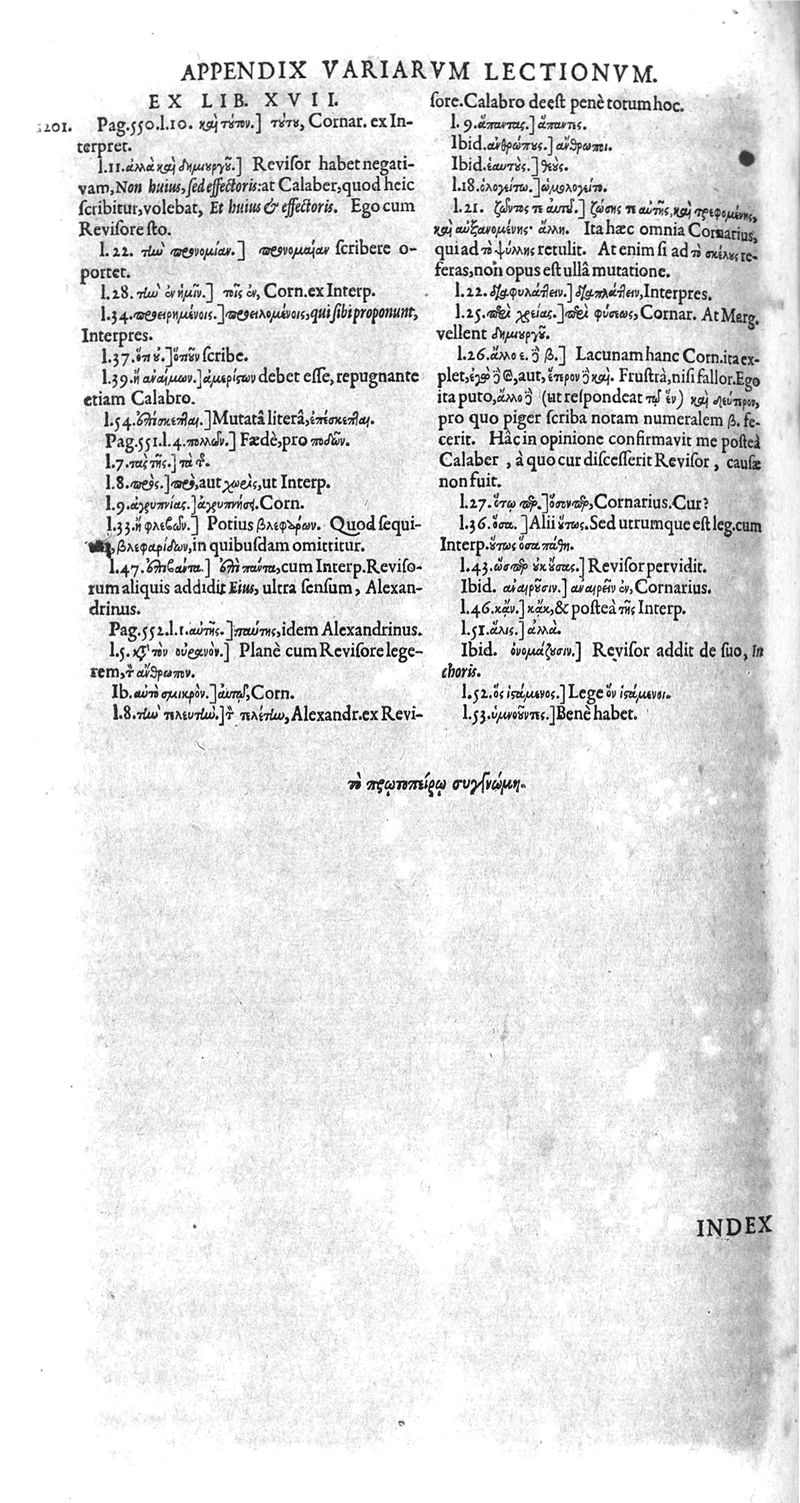 APPENDIX VARIARVM LECTIONVM.
EX LIB. XVII.
1201. Pag.550.l.10. καὶ τύπον.] τύτυ, Cornar. ex In-
terpret.
l.11. ἀλλὰ καὶ δημιουργοῦ.] Revisor habet negati-
vam, Non huius, sed effectoris: at Calaber, quod heic
scribitur, volebat, Et huius & effectoris. Ego cum
Revisore sto.
l.22. τὴν προνομίαν.] προνομαίαν scribere o-
portet.
l.28. τὴν ἐν ἡμῖν.] τοῖς ἐν, Corn. ex Interp.
l.34. προειρημένοις.] προειλομένοις, qui sibi proponunt,
Interpres.
l.37. ὅπου.] ὅπουν scribe.
l.39. ἢ ἀναίμων.] ἀμερίστων debet esse, repugnante
etiam Calabro.
l.54. ἐπισκεπται.] Mutatâ literâ, ἐπέσκεπται.
Pag.551.l.4. πολλῶν.] Fœdè, pro ποδῶν.
l.7. τὰς τῆς.] τὰ τ.
l.8. πρὸς.] πρὸ, aut χωρὶς, ut Interp.
l.9. ἀγρυπνίας.] ἀγρυπνήσῃ. Corn.
l.33. ἢ φλεβῶν.] Potius βλεφάρων. Quod sequi-
βλεφαρίδων, in quibusdam omittitur.
l.47. ἐπιβαντα.] ἐπὶ πάντα, cum Interp. Reviso-
rum aliquis addidit Eius, ultra sensum, Alexan-
drinus.
Pag.552.l.1. αὐτῆς.] παύτης, idem Alexandrinus.
l.5. κατὰ τὸν οὐρανὸν.] Planè cum Revisore lege-
rem, τ ἄνθρωπον.
Ib. αὐτὸ σμικρὸν.] αὐτῷ, Corn.
l.8. τὴν τελευτὴν.] τ τελέτην, Alexandr. ex Revi-
sore. Calabro deest penè totum hoc.
l.9. ἅπαντας.] ἅπαντες.
Ibid. ἀνθρώπους.] ἄνθρωποι.
Ibid. ἑαυτὺς.] θεὺς.
l.18. ὁλογεῖτο.] ὡμολογεῖτο.
l.21. ζῶντος τε αὐτοῦ.] ζώσης τε αὐτῆς, καὶ τρεφομένης,
καὶ αὐξανομένης· ἄλλη. Ita hæc omnia Cornarius,
qui ad τὸ ψύλλης retulit. At enim si ad τὸ σκέλους re-
feras, non opus est ullâ mutatione.
l.22. διαφυλάττειν.] διαπλάττειν, Interpres.
l.25. περὶ χρείας.] περὶ φύσεως, Cornar. At Marg.
vellent δημιουργοῦ.
l.26. ἄλλο ε. β.] Lacunam hanc Corn. ita ex-
plet, aut, ἕτερον καὶ. Frustrà, nisi fallor. Ego
ita puto, ἄλλο (ut respondeat τῷ ἓν) καὶ δεύτερον,
pro quo piger scriba notam numeralem β. fe-
cerit. Hâc in opinione confirmavit me posteà
Calaber, à quo cur discesserit Revisor, causæ
non fuit.
l.27. Cornarius. Cur?
l.36. ὅσα.] Alii ὕτως. Sed utrumque est leg. cum
Interp. ὕτως ὅσα πάθη.
l.43. Revisor pervidit.
Ibid. ἀναιρῦσιν.] ἀναιρεῖν ἐν, Cornarius.
l.46. κἂν.] κἀκ, & posteà τῆς Interp.
l.51. ἅλις.] ἀλλὰ.
Ibid. ὀνομάζυσιν.] Revisor addit de suo, In
choris.
l.52. ὃς ἱστάμενος.] Lege ὃν ἱστάμενοι.
l.53. ὑμνοῦντες.] Benè habet.
τῷ πρωτοπείρῳ συγγνώμη.
INDEX